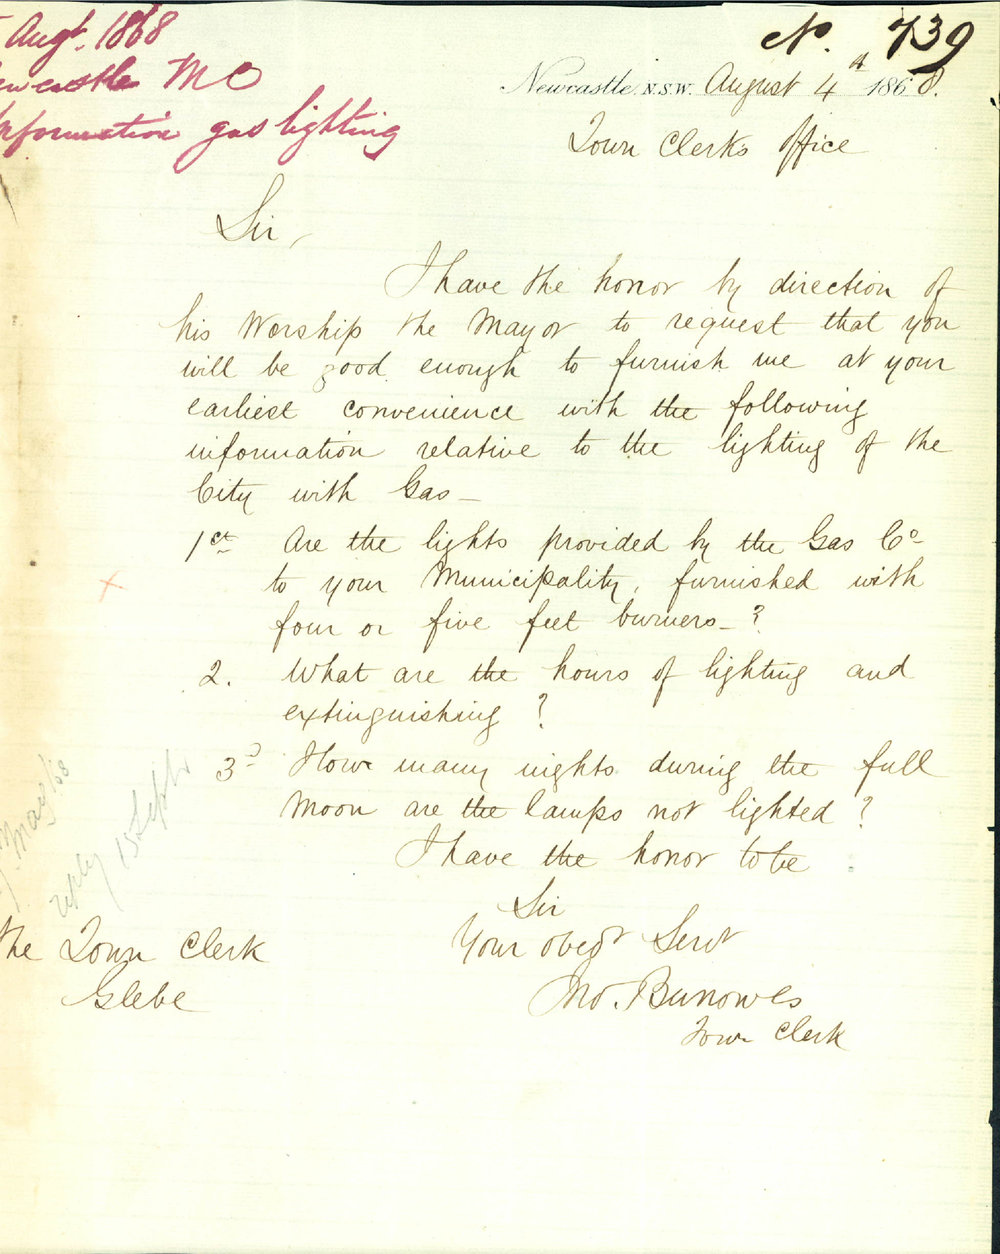 Augt. 1868
Newcastle MC
Information gas lighting
No. 739
Newcastle. N.S.W. August 4th 1868.
Town Clerks Office
Sir,
I have the honor by direction of
his Worship the Mayor to request that you
will be good enough to furnish me at your
earliest convenience with the following
information relative to the lighting of the
City with Gas _
1st Are the lights provided by the Gas Co
to your Municipality, furnished with
four or five feet burners _ ?
2. What are the hours of lighting and
extinguishing ?
3d How many nights during the full
Moon are the lamps not lighted ?
I have the honor to be
Sir
Your obedt Servt
Jno. Burrowes
Town Clerk
The Town Clerk
Glebe
reply 15 Sept